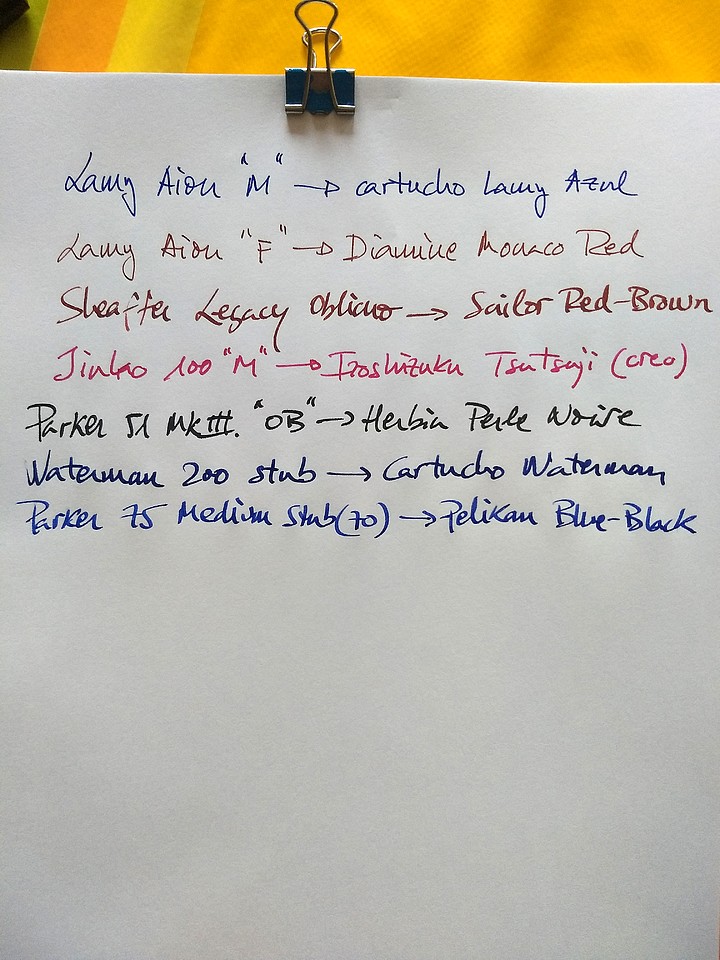 Lamy Aion "M" → cartucho Lamy Azul
Lamy Aion "F" → Diamine Monaco Red
Sheaffer Legacy Oblicuo → Sailor Red-Brown
Jinhao 100 "M" → Iroshizuku Tsutsuji (creo)
Parker 51 MkIII. "OB" → Herbin Perle Noire
Waterman 200 stub → Cartucho Waterman
Parker 75 Medium Stub(70) → Pelikan Blue-Black